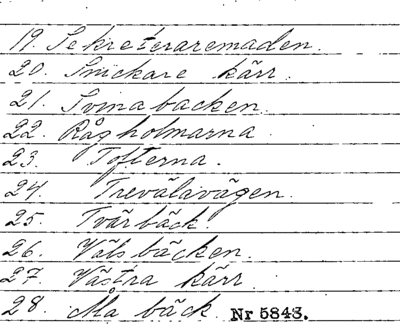 19. Sekreteraremaden.
20. Snickare kärr.
21. Svinabacken.
22. Rågholmarna.
23. Tofterna.
24. Trevälavägen.
25. Tvärbäck.
26. Välsbäcken.
27. Västra kärr
28. Åla bäck. Nr 5843.